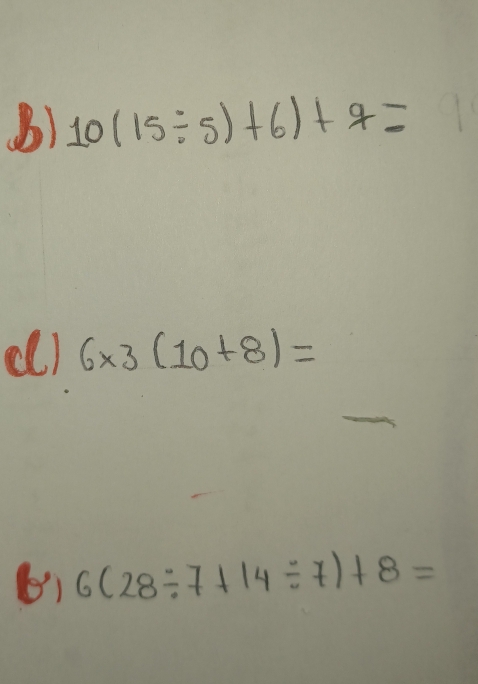 b) 10(15÷5)+6)+9=
d) 6×3(10+8)=
b) 6(28÷7+14÷7)+8=